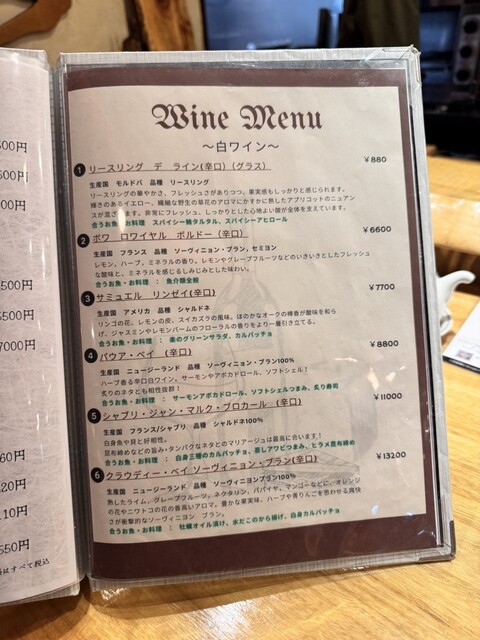 500円
600円
00円
500円
500円
7000円
60円
20円
110円
550円
はすべて税込
Wine Menu
～白ワイン～
1 リースリング デ ライン(辛口)(グラス) ¥880
生産国 モルドバ 品種 リースリング
リースリングの華やかさ、フレッシュさがありつつ、果実感もしっかりと感じられます。
輝きのあるイエロー、繊細な野生の草花のアロマにかすかに熟したアプリコットのニュアン
スが混ざります。非常にフレッシュ、しっかりとした心地よい酸が全体を支えています。
合うお魚・お料理 ： スパイシー鮪タルタル、スパイシーアヒロール
2 ボワ ロワイヤル ボルドー(辛口) ¥6600
生産国 フランス 品種 ソーヴィニョン・ブラン，セミヨン
レモン、ハーブ、ミネラルの香り。レモンやグレープフルーツなどのいきいきとしたフレッシュ
な酸味と、ミネラルを感じるしみじみとした味わい。
合うお魚・お料理 ： 魚介類全般
3 サミュエル リンゼイ(辛口) ¥7700
生産国 アメリカ 品種 シャルドネ
リンゴの花、レモンの皮、スイカズラの風味。ほのかなオークの樽香が酸味を和ら
げ、ジャスミンやレモンバームのフローラルの香りをより一層引き立てる。
合うお魚・お料理 ： 楽のグリーンサラダ、カルパッチョ
4 パウア・ベイ (辛口) ¥8800
生産国 ニュージーランド 品種 ソーヴィニョン・ブラン100%
ハーブ香る辛口白ワイン。サーモンやアボカドロール、ソフトシェル！
炙りのネタとも相性抜群！
合うお魚・お料理 ： サーモンアボカドロール、ソフトシェルつまみ、炙り寿司
5 シャブリ・ジャン・マルク・ブロカール (辛口) ¥11000
生産国 フランス/シャブリ 品種 シャルドネ100%
白身魚や貝と好相性。
昆布締めなどの旨み・タンパクなネタとのマリアージュは最高に合います！
合うお魚・お料理 ： 白身三種のカルパッチョ、蒸しアワビつまみ、ヒラメ昆布締め
6 クラウディー・ベイ ソーヴィニョン・ブラン(辛口) ¥13200
生産国 ニュージーランド 品種 ソーヴィニヨンブラン100%
熟したライム、グレープフルーツ、ネクタリン、パパイヤ、マンゴーなどに、オレンジ
の花やニワトコの花の香高いアロマ。豊かな果実味、ハーブの香りんごを思わせる爽快
さが衝撃的なソーヴィニヨン ブラン。
合うお魚・お料理 ： 牡蠣オイル漬け、水だこのから揚げ、白身カルパッチョ